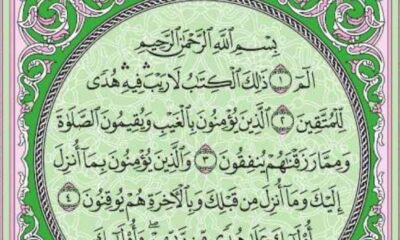 بِسْمِ ٱللَّهِ ٱلرَّحْمَٰنِ ٱلرَّحِيمِ
الٓمٓ ۝١ ذَٰلِكَ ٱلْكِتَٰبُ لَا رَيْبَ ۛ فِيهِ ۛ هُدًى
لِّلْمُتَّقِينَ ۝٢ ٱلَّذِينَ يُؤْمِنُونَ بِٱلْغَيْبِ وَيُقِيمُونَ ٱلصَّلَوٰةَ
وَمِمَّا رَزَقْنَٰهُمْ يُنفِقُونَ ۝٣ وَٱلَّذِينَ يُؤْمِنُونَ بِمَآ أُنزِلَ
إِلَيْكَ وَمَآ أُنزِلَ مِن قَبْلِكَ وَبِٱلْءَاخِرَةِ هُمْ يُوقِنُونَ ۝٤
أُو۟لَٰٓئِكَ عَلَىٰ هُدًى مِّن رَّبِّهِمْ ۖ وَأُو۟لَٰٓئِكَ